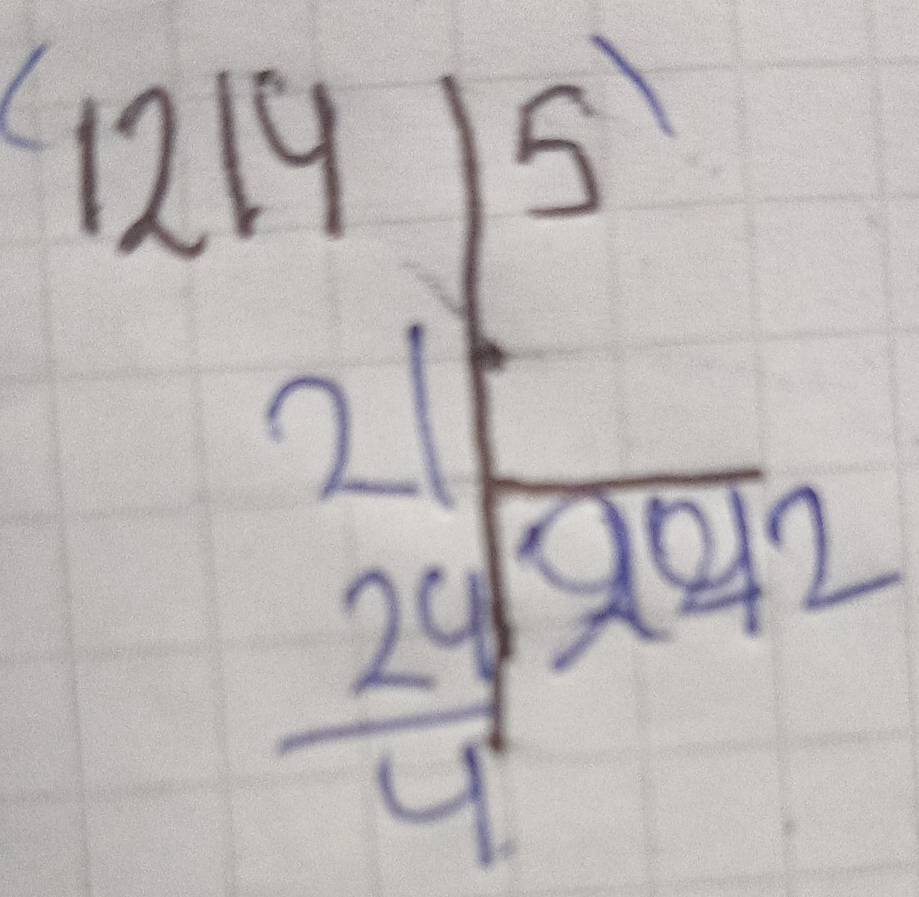 (1214 | 5)
21
242
24
4